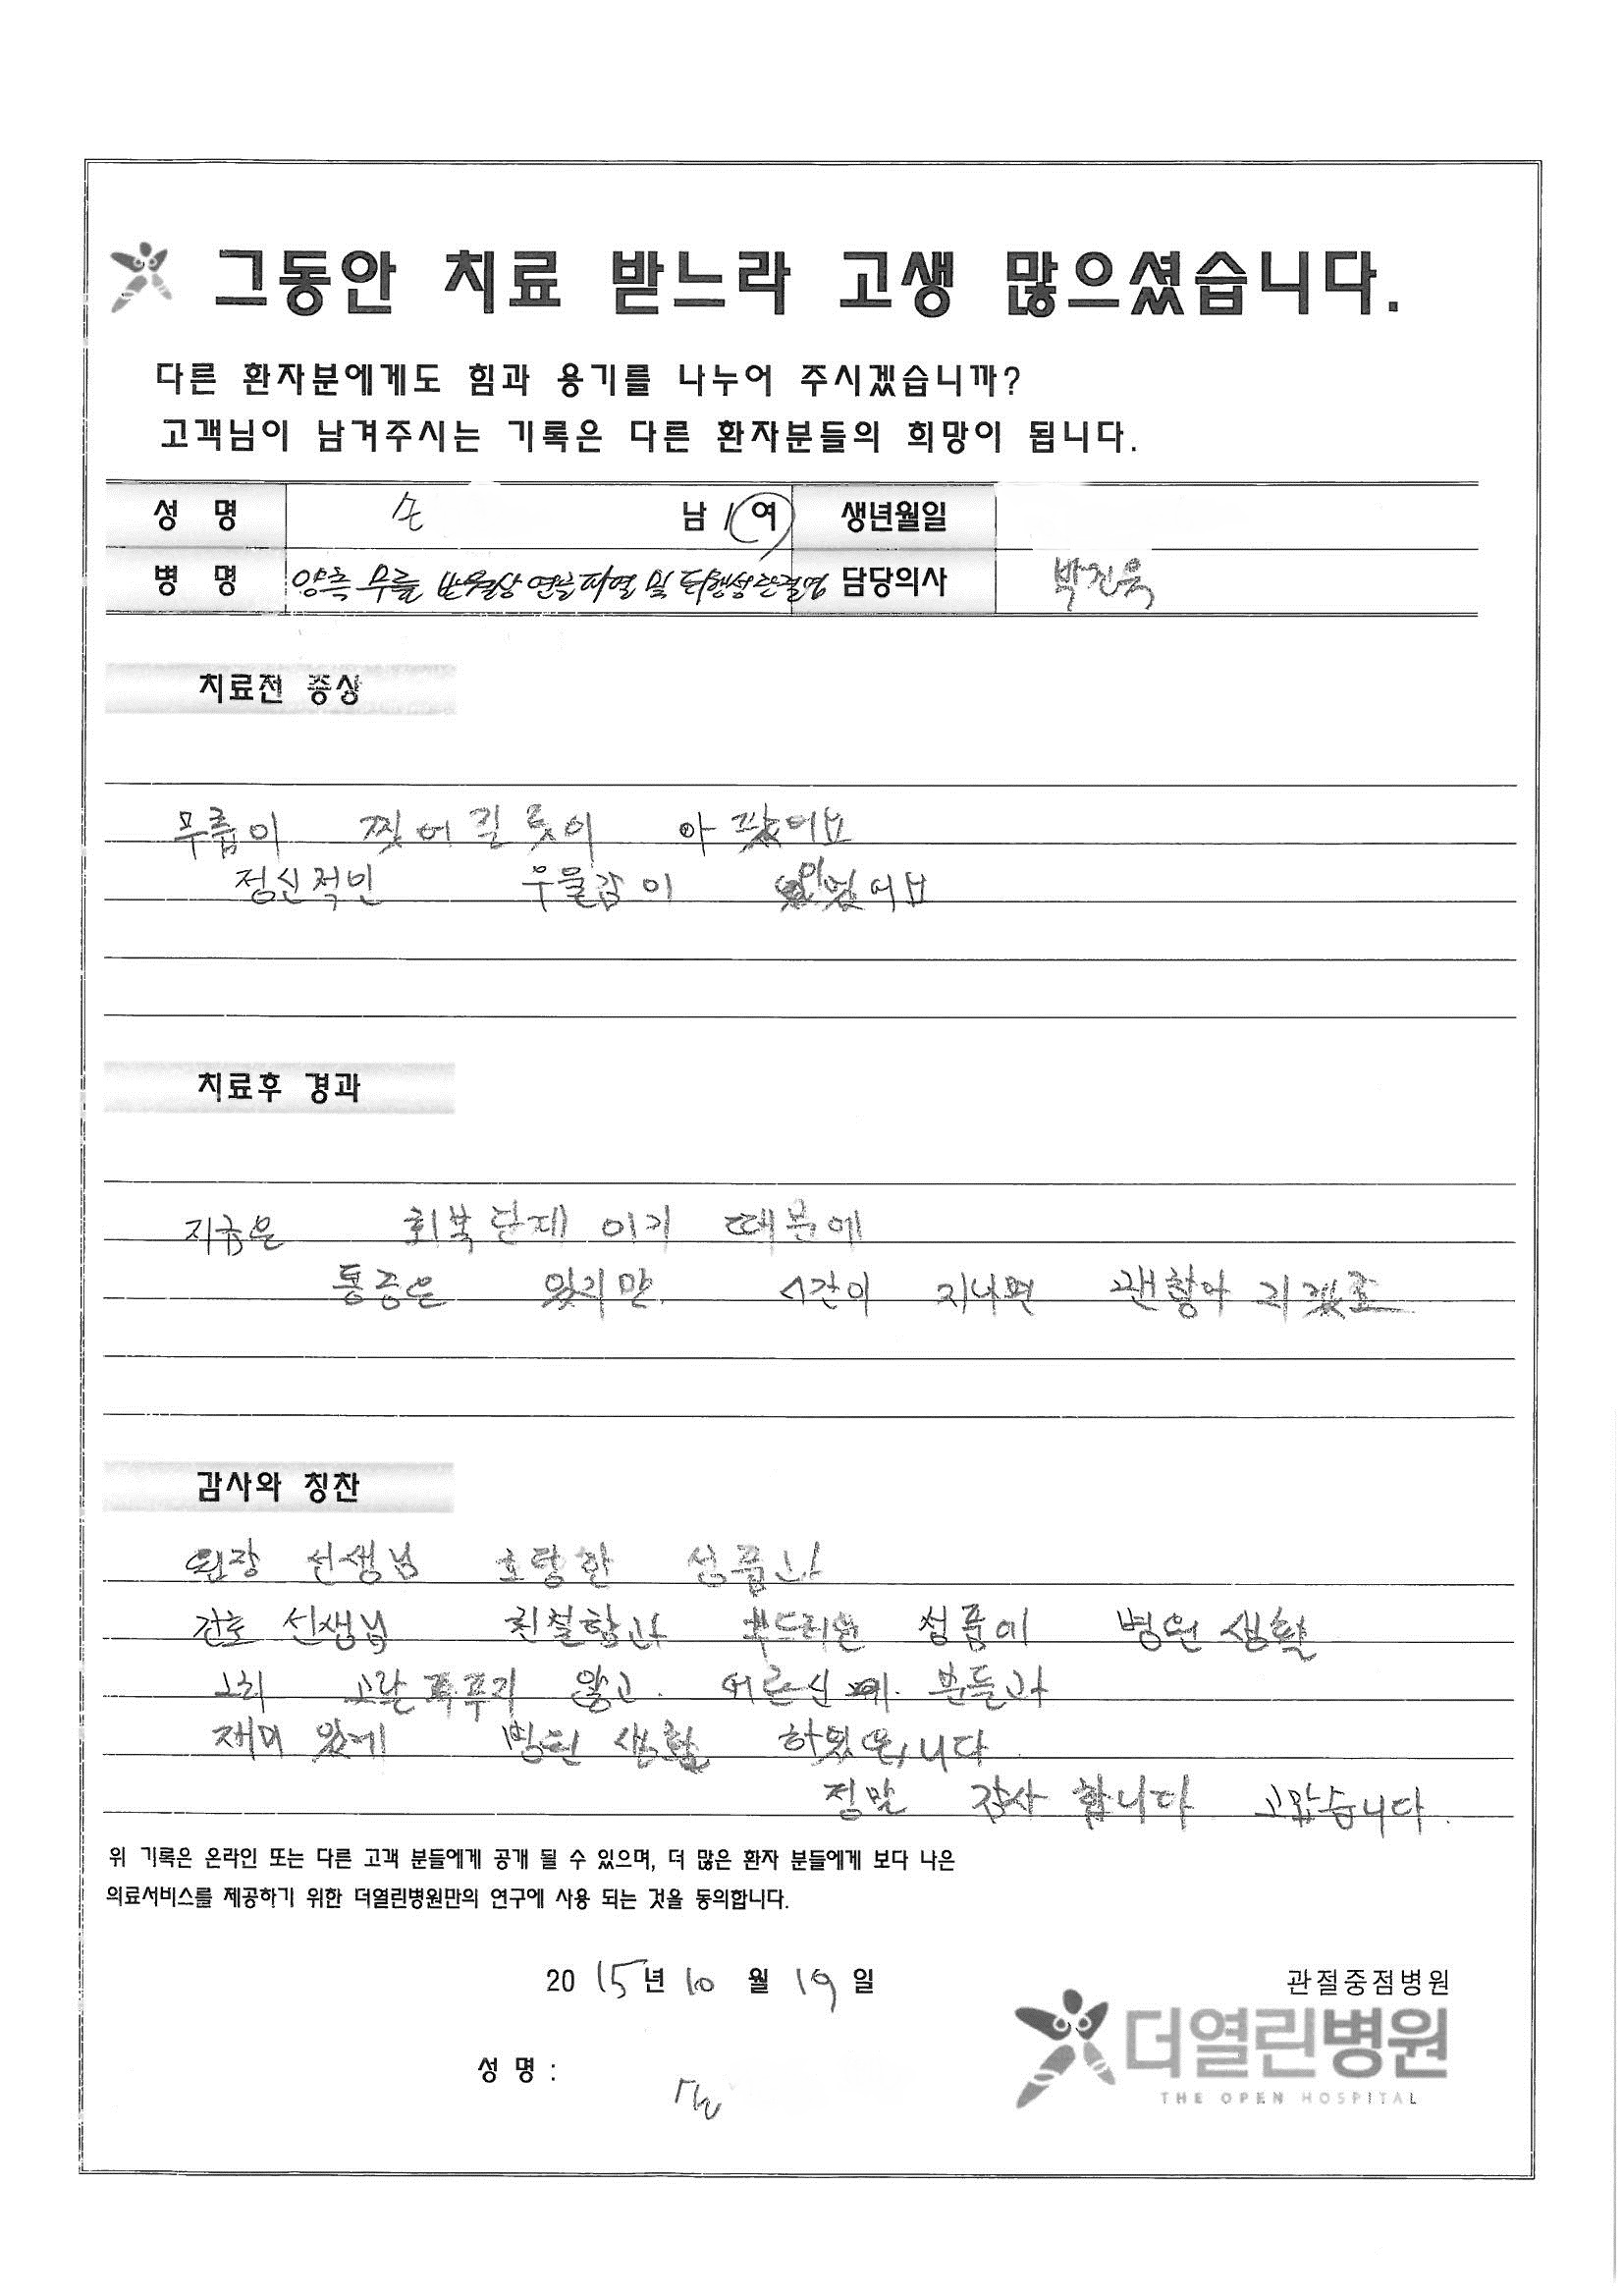 그동안 치료 받느라 고생 많으셨습니다.
다른 환자분에게도 힘과 용기를 나누어 주시겠습니까?
고객님이 남겨주시는 기록은 다른 환자분들의 희망이 됩니다.
성 명 손 남 / 여 생년월일
병 명 양측 무릎 반월상 연골파열 및 퇴행성관절염 담당의사 박진욱
치료전 증상
무릎이 찢어질 듯이 아팠어요
정신적인 우울감이 있었어요
치료후 경과
지금은 회복단계 이기 때문에
통증은 있지만 시간이 지나면 괜찮아 지겠죠
감사와 칭찬
원장 선생님 호탕한 성품과
간호 선생님 친절함과 부드러운 성품이 병원 생활
않고. 어르신 분들과
재미 있게 병원 생활
정말 감사 합니다 고맙습니다.
위 기록은 온라인 또는 다른 고객 분들에게 공개 될 수 있으며, 더 많은 환자 분들에게 보다 나은
의료서비스를 제공하기 위한 더열린병원만의 연구에 사용 되는 것을 동의합니다.
2015년 10 월 19 일
관절중점병원
더열린병원
THE OPEN HOSPITAL
성 명 : 손